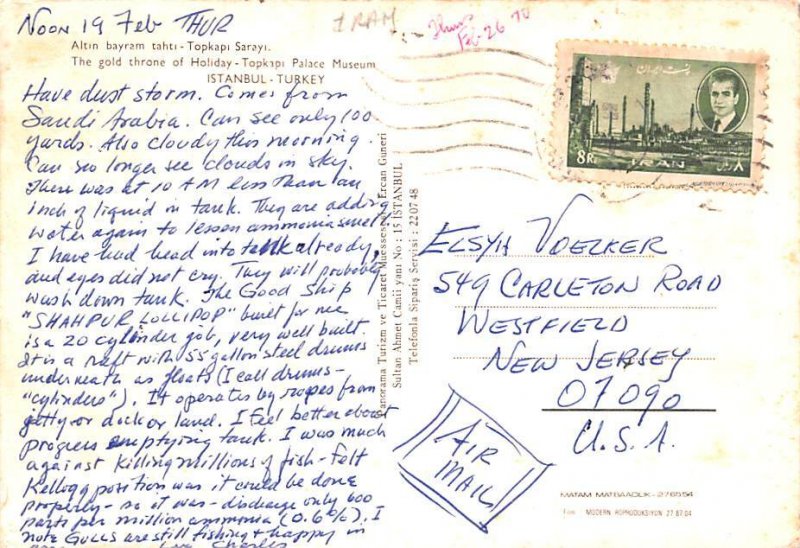 NOON 19 Feb THUR
IRAN
Thurs
Feb-26-70
Altın bayram tahtı - Topkapı Sarayı.
The gold throne of Holiday - Topkapı Palace Museum
ISTANBUL - TURKEY
Have dust storm. Comes from
Saudi Arabia. Can see only 100
yards. Also cloudy this morning.
Can no longer see clouds in sky.
There was at 10 AM less than an
inch of liquid in tank. They are adding
water again to lessen ammonia smell
I have had head into tank already,
and eyes did not cry. They will probably
wash down tank. The Good Ship
"SHAHPUR LOLLIPOP" built for me
is a 20 cylinder job, very well built.
It is a raft with 55 gallon steel drums
underneath as floats (I call drums-
"cylinders"). It operates by ropes from
jetty or dock or land. I feel better about
progress emptying tank. I was much
against killing millions of fish - felt
Kellogg position was it could be done
properly - so it was - discharge only 600
parts per million ammonia (0.6%). I
note GULLS are still fishing & happy in
Love Charles
Panorama Turizm ve Ticaret Müessesesi Ercan Güneri
Sultan Ahmet Camii yanı No : 15 İSTANBUL
Telefonla Sipariş Servisi : 22 07 48
پست ایران
8R.
IRAN
۸ ر
ELSYH VOELKER
549 CARLETON ROAD
WESTFIELD
NEW JERSEY
07090
U.S.A.
AIR
MAIL
MATAM MATBAACILIK - 276554
MODERN ROPRODUKSIYON 27 87 04